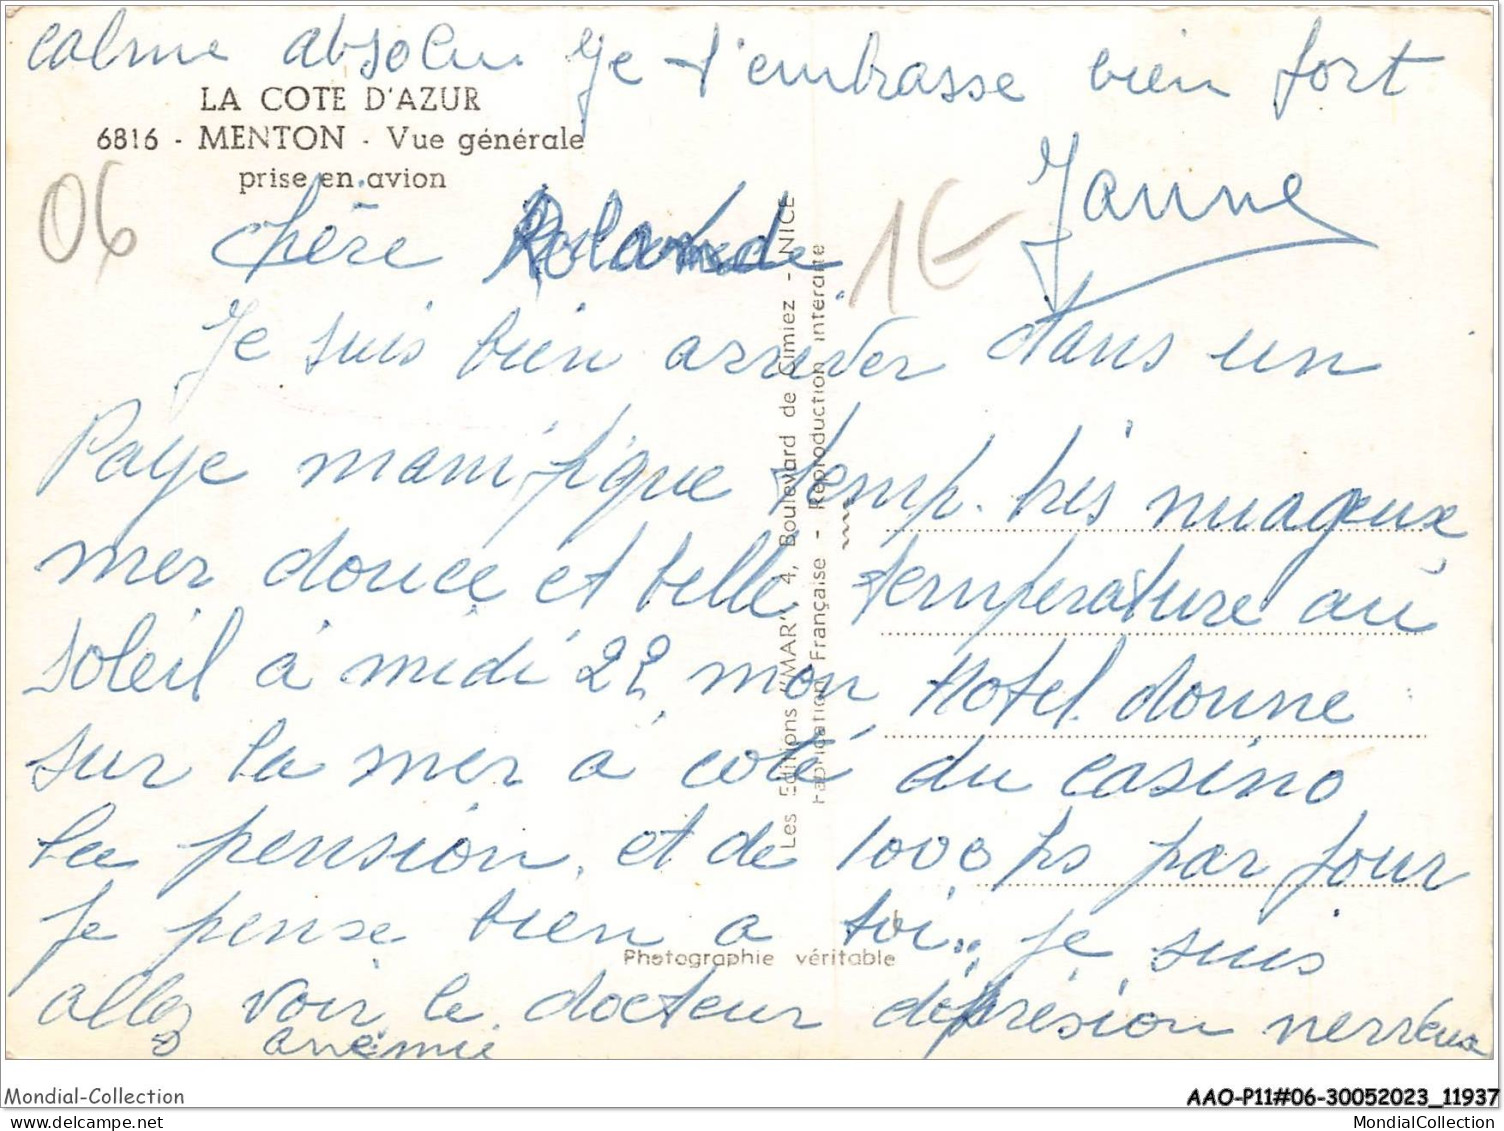 calme absolu Je t'embrasse bien fort
LA COTE D'AZUR
6816 - MENTON - Vue générale
prise en avion
06
1€
Janne
Chère Rolande
Je suis bien arriver dans un
Paye manifique temp. très nuageux
mer douce et belle température au
soleil à midi 22, mon Hotel donne
sur la mer à coté du casino
la pension, et de 1000 frs par jour
Je pense bien a toi.. je suis
allez voir le docteur déprésion nerveuse
anémie
Les Editions "MAR", 4, Boulevard de Cimiez - NICE
Fabrication Française - Reproduction interdite
Photographie véritable
Mondial-Collection
AAO-P11#06-30052023_11937
MondialCollection